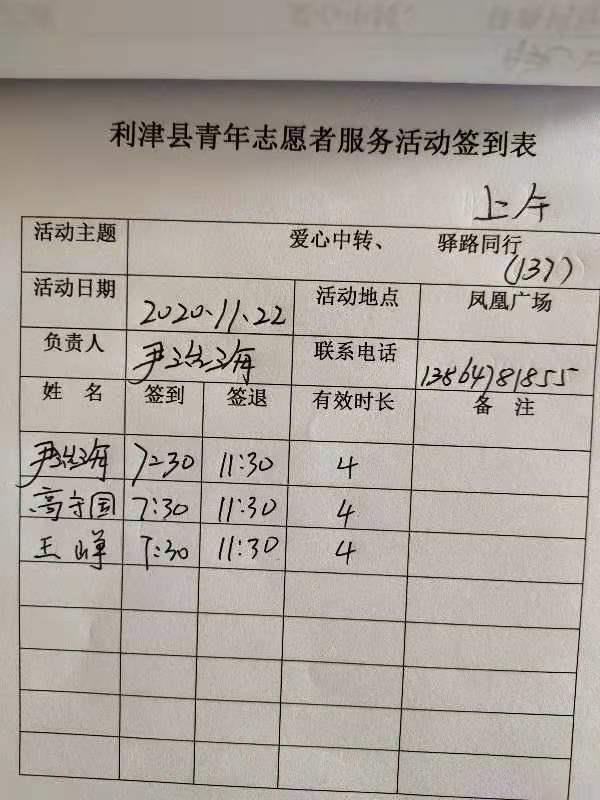 利津县青年志愿者服务活动签到表
上午
活动主题 爱心中转、 驿路同行
(137)
活动日期 2020.11.22 活动地点 凤凰广场
负责人 尹 海 联系电话 13864781855
姓 名 签到 签退 有效时长 备 注
尹 海 7:30 11:30 4
高守国 7:30 11:30 4
王 7:30 11:30 4